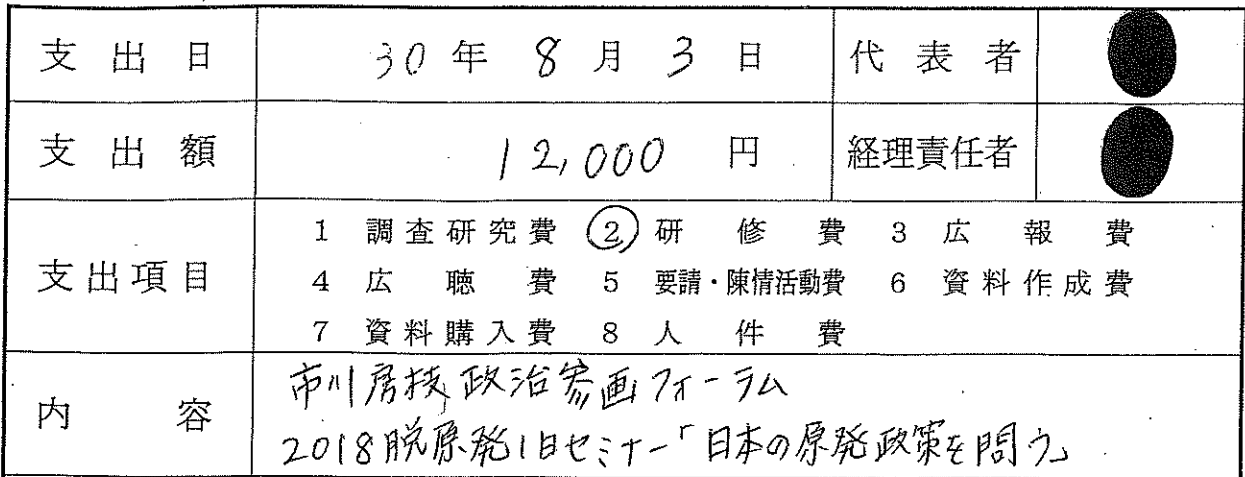 支出日 30年 8月 3日 代表者
支出額 12,000 円 経理責任者
1 調査研究費 ② 研修費 3 広報費
支出項目 4 広聴費 5 要請・陳情活動費 6 資料作成費
7 資料購入費 8 人件費
市川房枝政治参画フォーラム
内容
2018脱原発1日セミナー「日本の原発政策を問う」